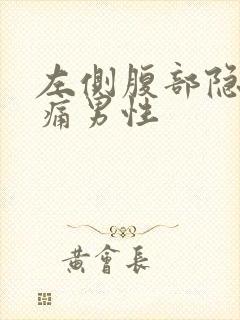 左側腹部隐
痛男性
黄會長